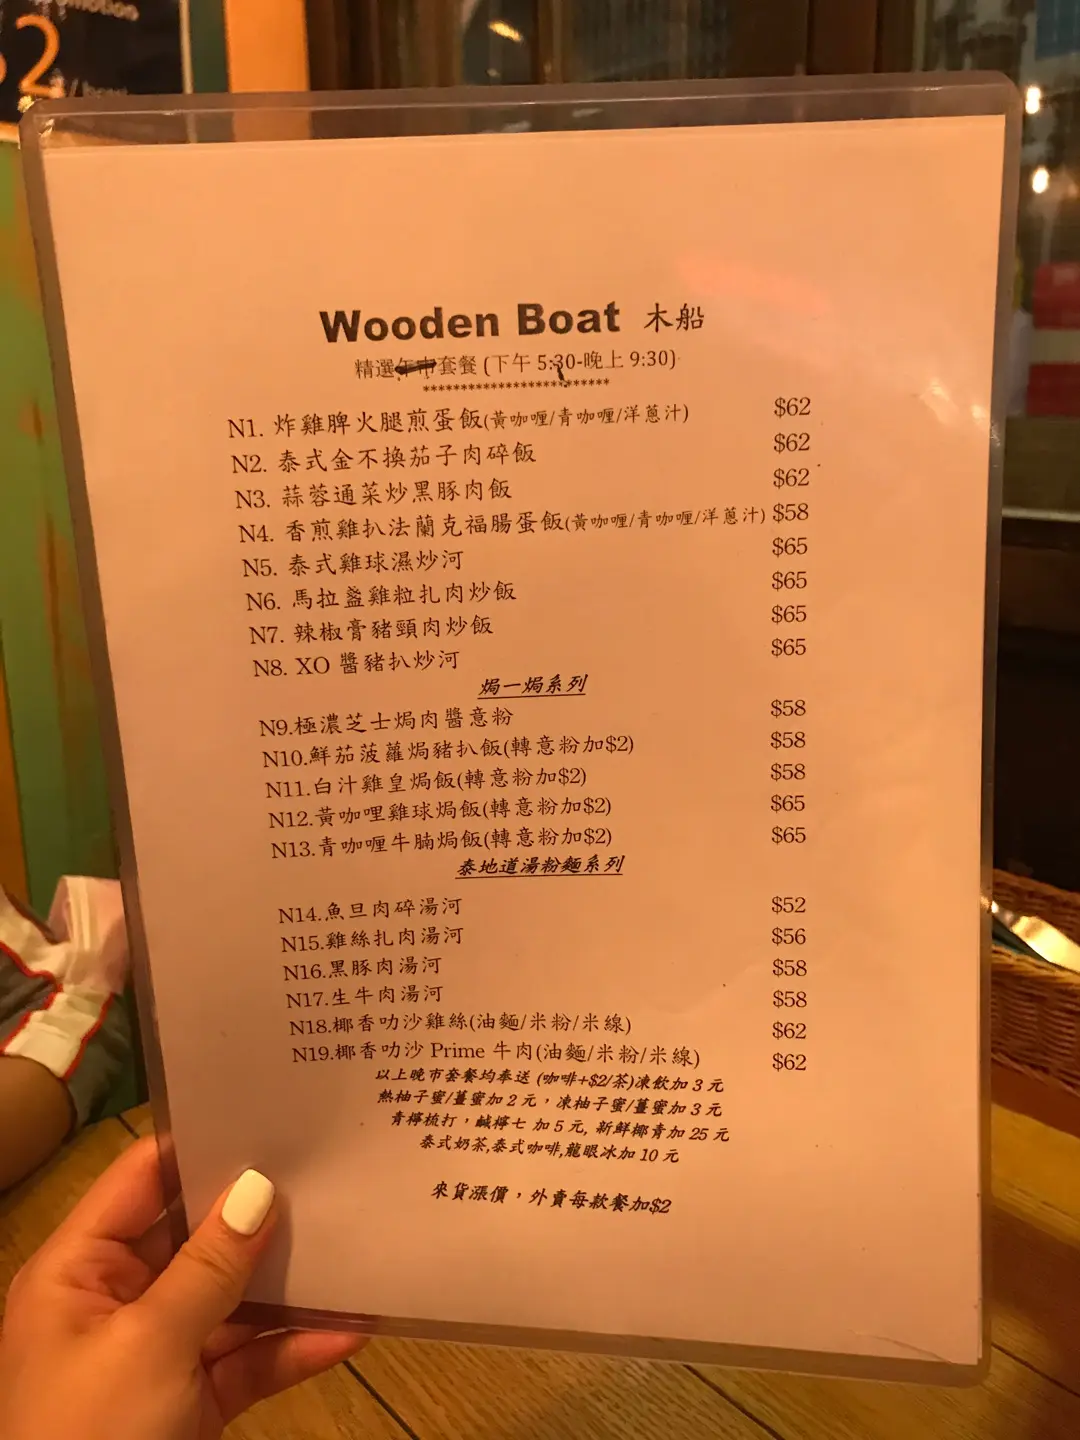 omotion
2
Wooden Boat 木船
精選年市套餐 (下午 5:30-晚上 9:30)
*************************
N1. 炸雞脾火腿煎蛋飯(黃咖喱/青咖喱/洋蔥汁) $62
N2. 泰式金不換茄子肉碎飯 $62
N3. 蒜蓉通菜炒黑豚肉飯 $62
N4. 香煎雞扒法蘭克福腸蛋飯(黃咖喱/青咖喱/洋蔥汁) $58
N5. 泰式雞球濕炒河 $65
N6. 馬拉盞雞粒扎肉炒飯 $65
N7. 辣椒膏豬頸肉炒飯 $65
N8. XO 醬豬扒炒河 $65
焗一焗系列
N9.極濃芝士焗肉醬意粉 $58
N10.鮮茄菠蘿焗豬扒飯(轉意粉加$2) $58
N11.白汁雞皇焗飯(轉意粉加$2) $58
N12.黃咖哩雞球焗飯(轉意粉加$2) $65
N13.青咖喱牛腩焗飯(轉意粉加$2) $65
泰地道湯粉麵系列
N14.魚旦肉碎湯河 $52
N15.雞絲扎肉湯河 $56
N16.黑豚肉湯河 $58
N17.生牛肉湯河 $58
N18.椰香叻沙雞絲(油麵/米粉/米線) $62
N19.椰香叻沙 Prime 牛肉(油麵/米粉/米線) $62
以上晚市套餐均奉送 (咖啡+$2/茶)凍飲加 3 元
熱柚子蜜/薑蜜加 2 元，凍柚子蜜/薑蜜加 3 元
青檸梳打，鹹檸七 加 5 元, 新鮮椰青加 25 元
泰式奶茶,泰式咖啡,龍眼冰加 10 元
來貨漲價，外賣每款餐加$2